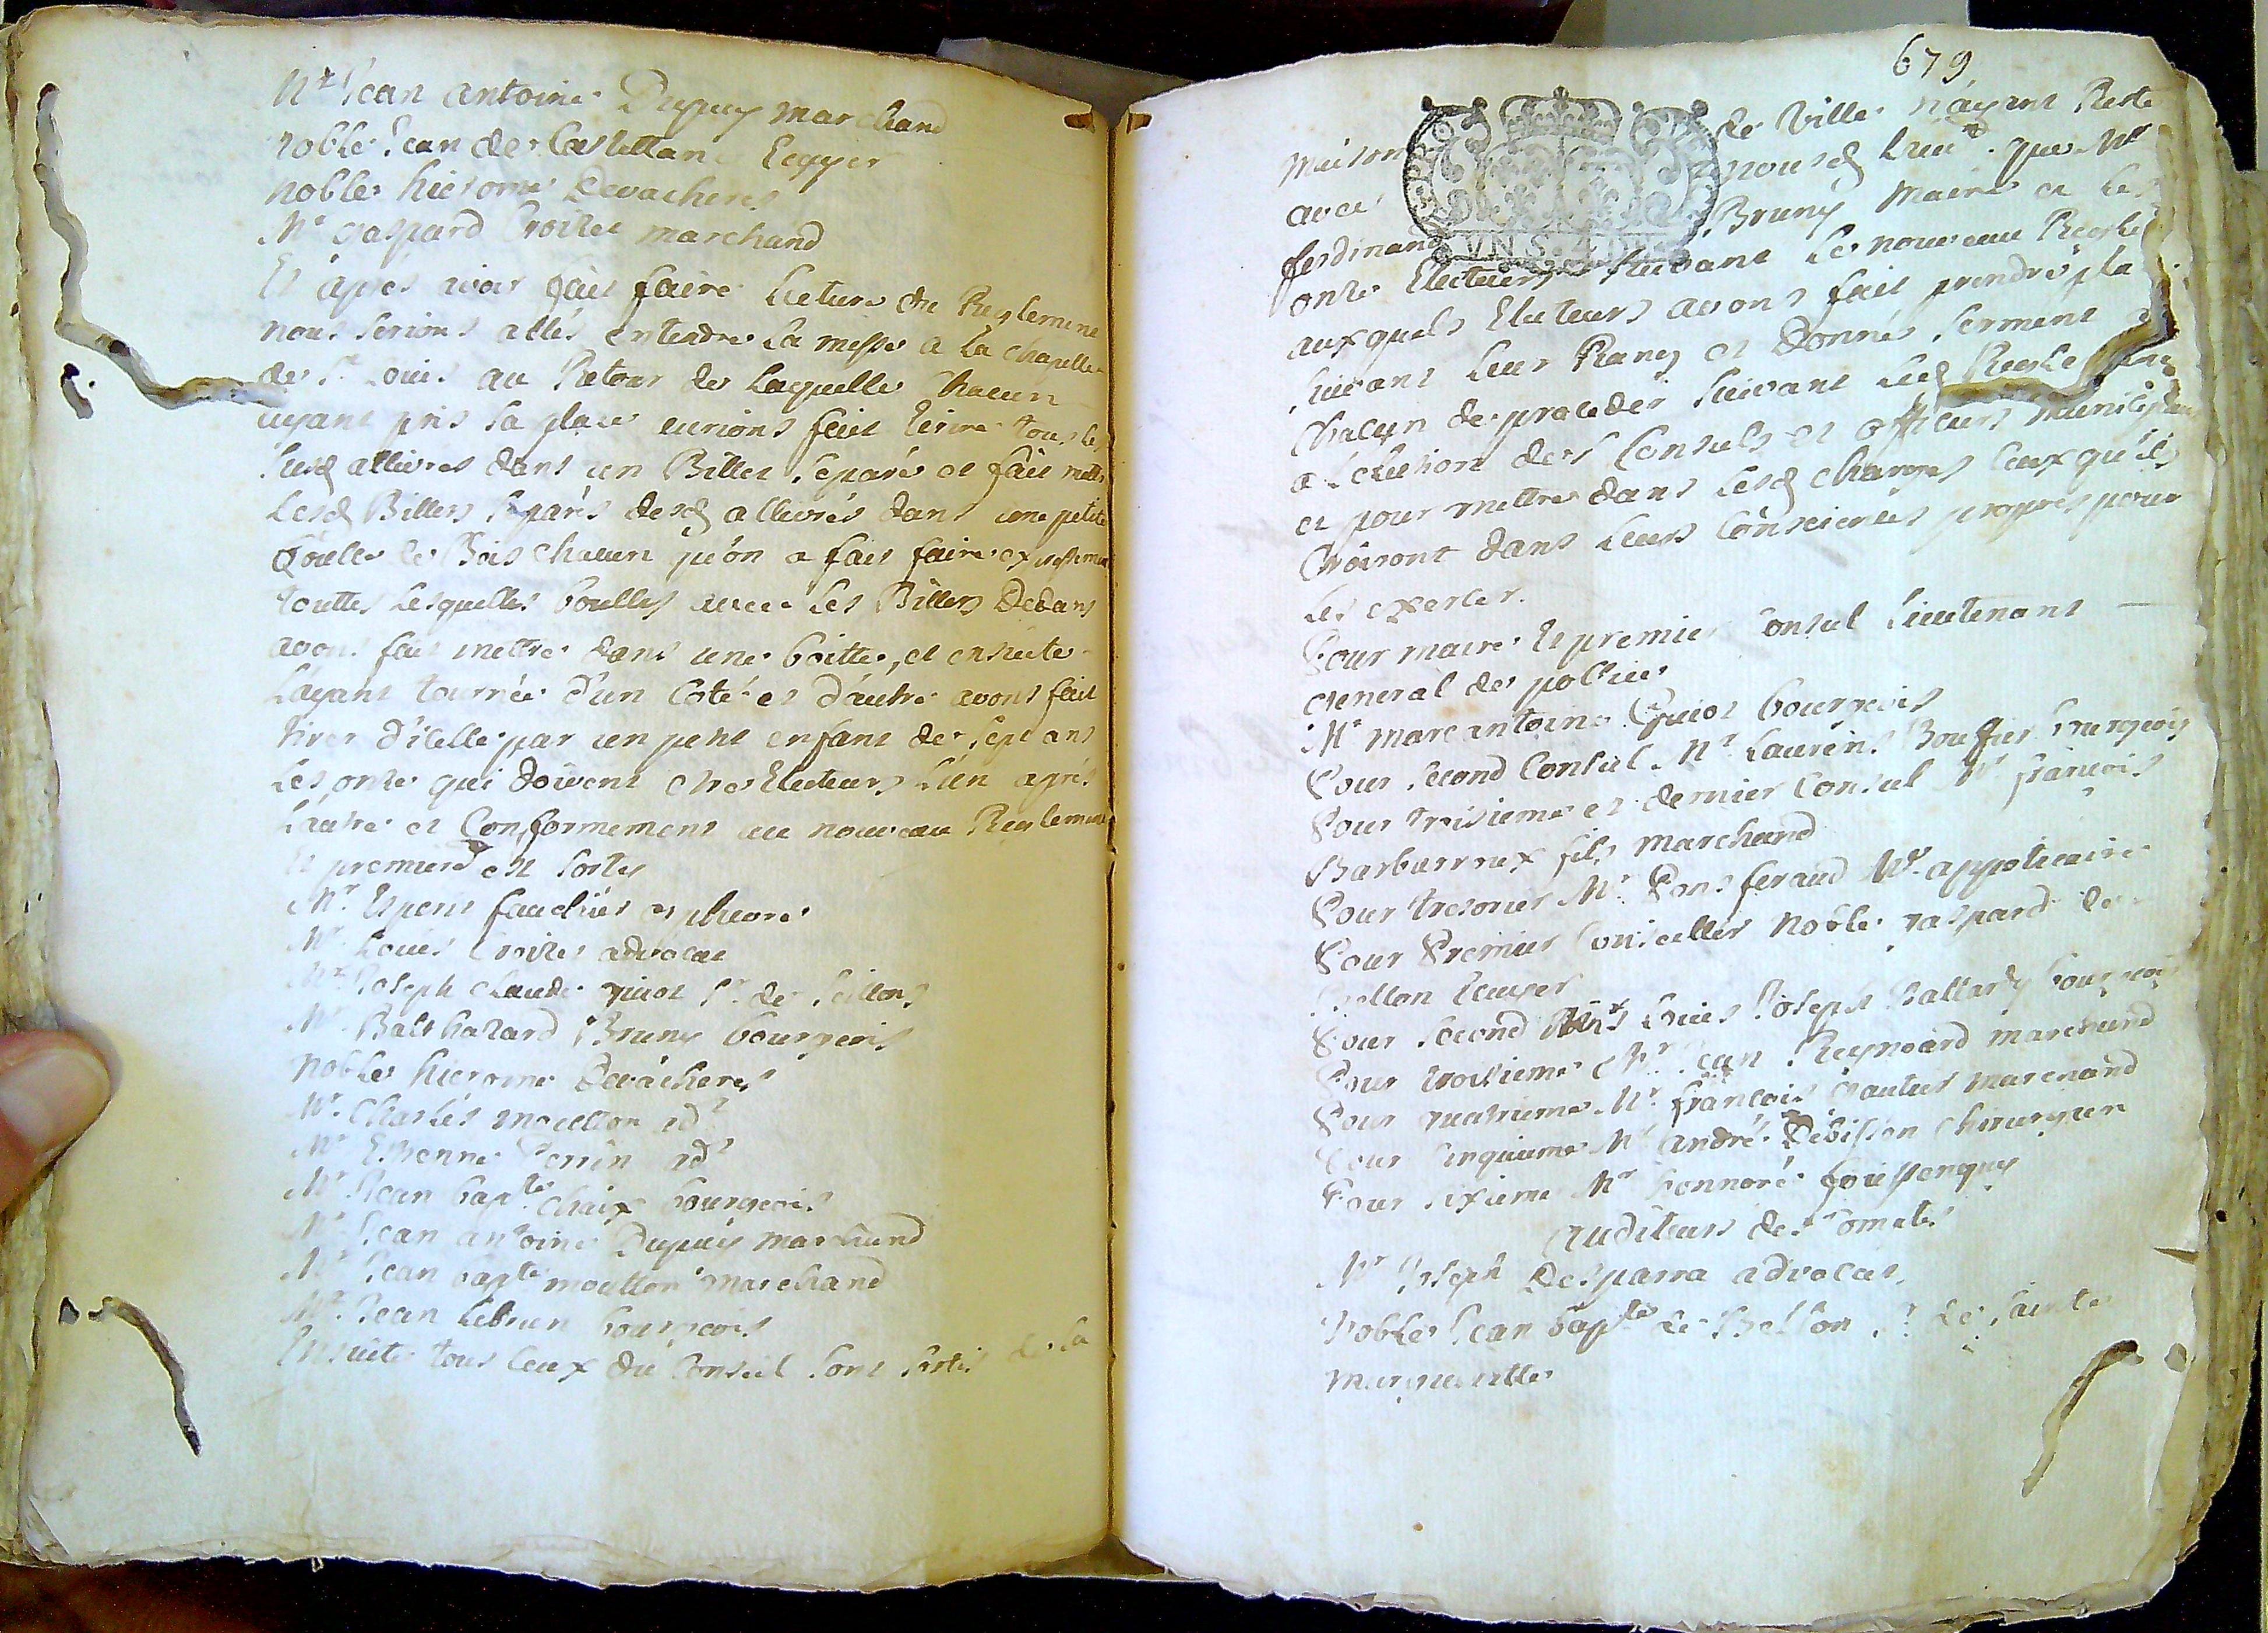 Mr Jean antoine Dupuy marchand
noble Jean de Castellane Ecuyer
noble hierome Devacheres
Mr gaspard Croizet marchand
Et apres avoir fait faire lecture du Reglement
nous serions allés entendre la messe a la chapelle
de St Louis au Retour de laquelle chacun
ayant pris sa place aurions fait Ecrire tous les
susd allivres dans un Billet separé et fait mettre
lesd Billets separés desd allivrés dans une petite
boulle de Bois chacun qu'on a fait faire expressement
touttes lesquelles boulles avec les Billets Dedans
avons fait mettre dans une boitte, et ensuite
Layant tournée d'un Coté et d'autre avons fait
tirer d'icelle par un petit enfant de sept ans
les onze qui doivent etre Electeurs L'un aprés
Lautre et Conformement au nouveau Reglement
Et premierd est sorty
Mr. Esperit fauchier
Mr Louis Croizet advocat
Mr Joseph Claude guiot Sr de Seillons
Mr Balthazard Bruny bourgeois
noble hierome Devacheres
Mr. Charles moutton adt
Mr Etienne Perrin adt
Mr Jean bapte Chaix bourgeois
Mr Jean antoine Dupuy marchand
Mr Jean bapte moutton marchand
Mr. Jean Lebrun bourgeois
Ensuite tous ceux du Conseil sont sortis de la
679
maison de Ville n'ayant Resté
avec nousd Lieut. que Mr
ferdinand Bruny maire et les
onze Electeurs suivant le nouveau Regle
auxquels Electeurs avons fait prendre pla
suivant leur Rang et Donné serment
Chacun de proceder suivant led Regle
a L'election des Consuls et officiers municipaux
et pour mettre dans lesd charges ceux qu'ils
Croiront dans leurs Consciences propres pour
les exercer.
Pour maire Et premier Consul Lieutenant
general de police
Mr marc antoine Guiot bourgeois
Pour second Consul Mr Laurens Bouffier bourgeois
Pour troisieme et dernier Consul Mr françois
Barbarroux fils marchand
Pour tresorier Mr Pons feraud Me appoticaire
Pour Premier Conseiller Noble gaspard de
Bellon Ecuyer
Pour second Louis Joseph Ballardy bourgeois
Pour troisieme Mr Jean Reynoard marchand
Pour quatrieme Mr françois Gautier marchand
Pour cinquieme Mr andré Rebisson chirurgien
Pour sixieme Mr honnoré fouissonquy
auditeurs des Comptes
Mr Joseph Desparra advocat
Noble Jean bapte de Bellon Sr de sainte
margueritte